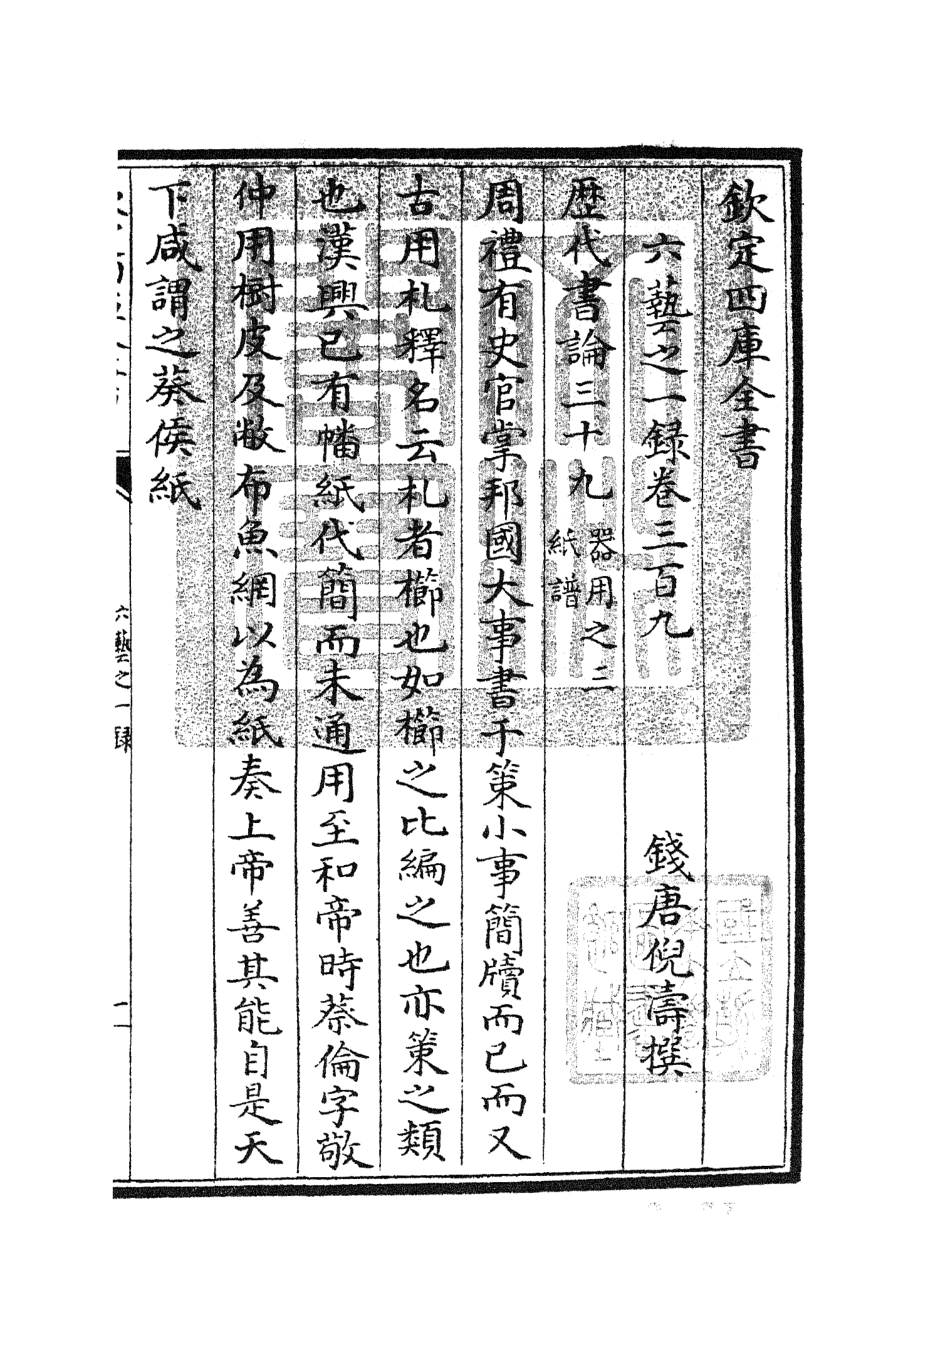 欽定四庫全書
六藝之一録卷三百九
錢唐倪濤撰
歴代書論三十九
器用之三
紙譜
周禮有史官掌邦國大事書于策小事簡牘而已而又
古用札釋名云札者櫛也如櫛之比編之也亦策之類
也漢興已有幡紙代簡而未通用至和帝時蔡倫字敬
仲用樹皮及敝布魚網以為紙奏上帝善其能自是天
下咸謂之蔡侯紙
六藝之一録
一